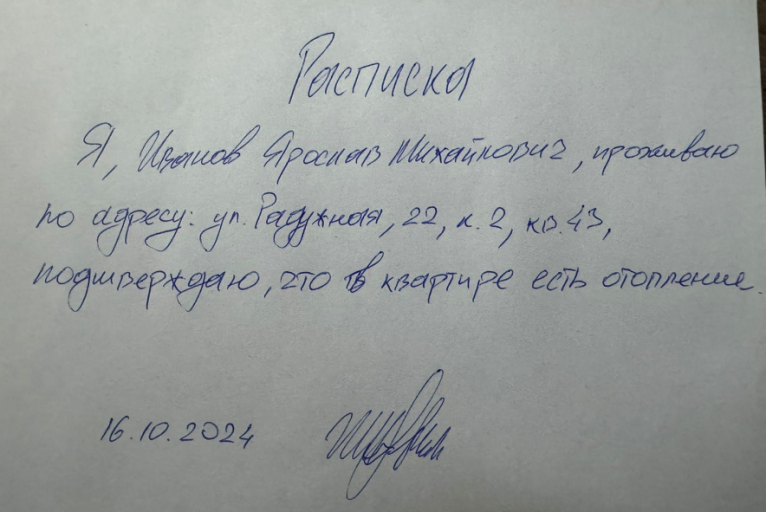 Расписка
Я, Иванов Ярослав Михайлович, проживаю
по адресу: ул. Радужная, 22, к. 2, кв. 43,
подтверждаю, что в квартире есть отопление.
16.10.2024